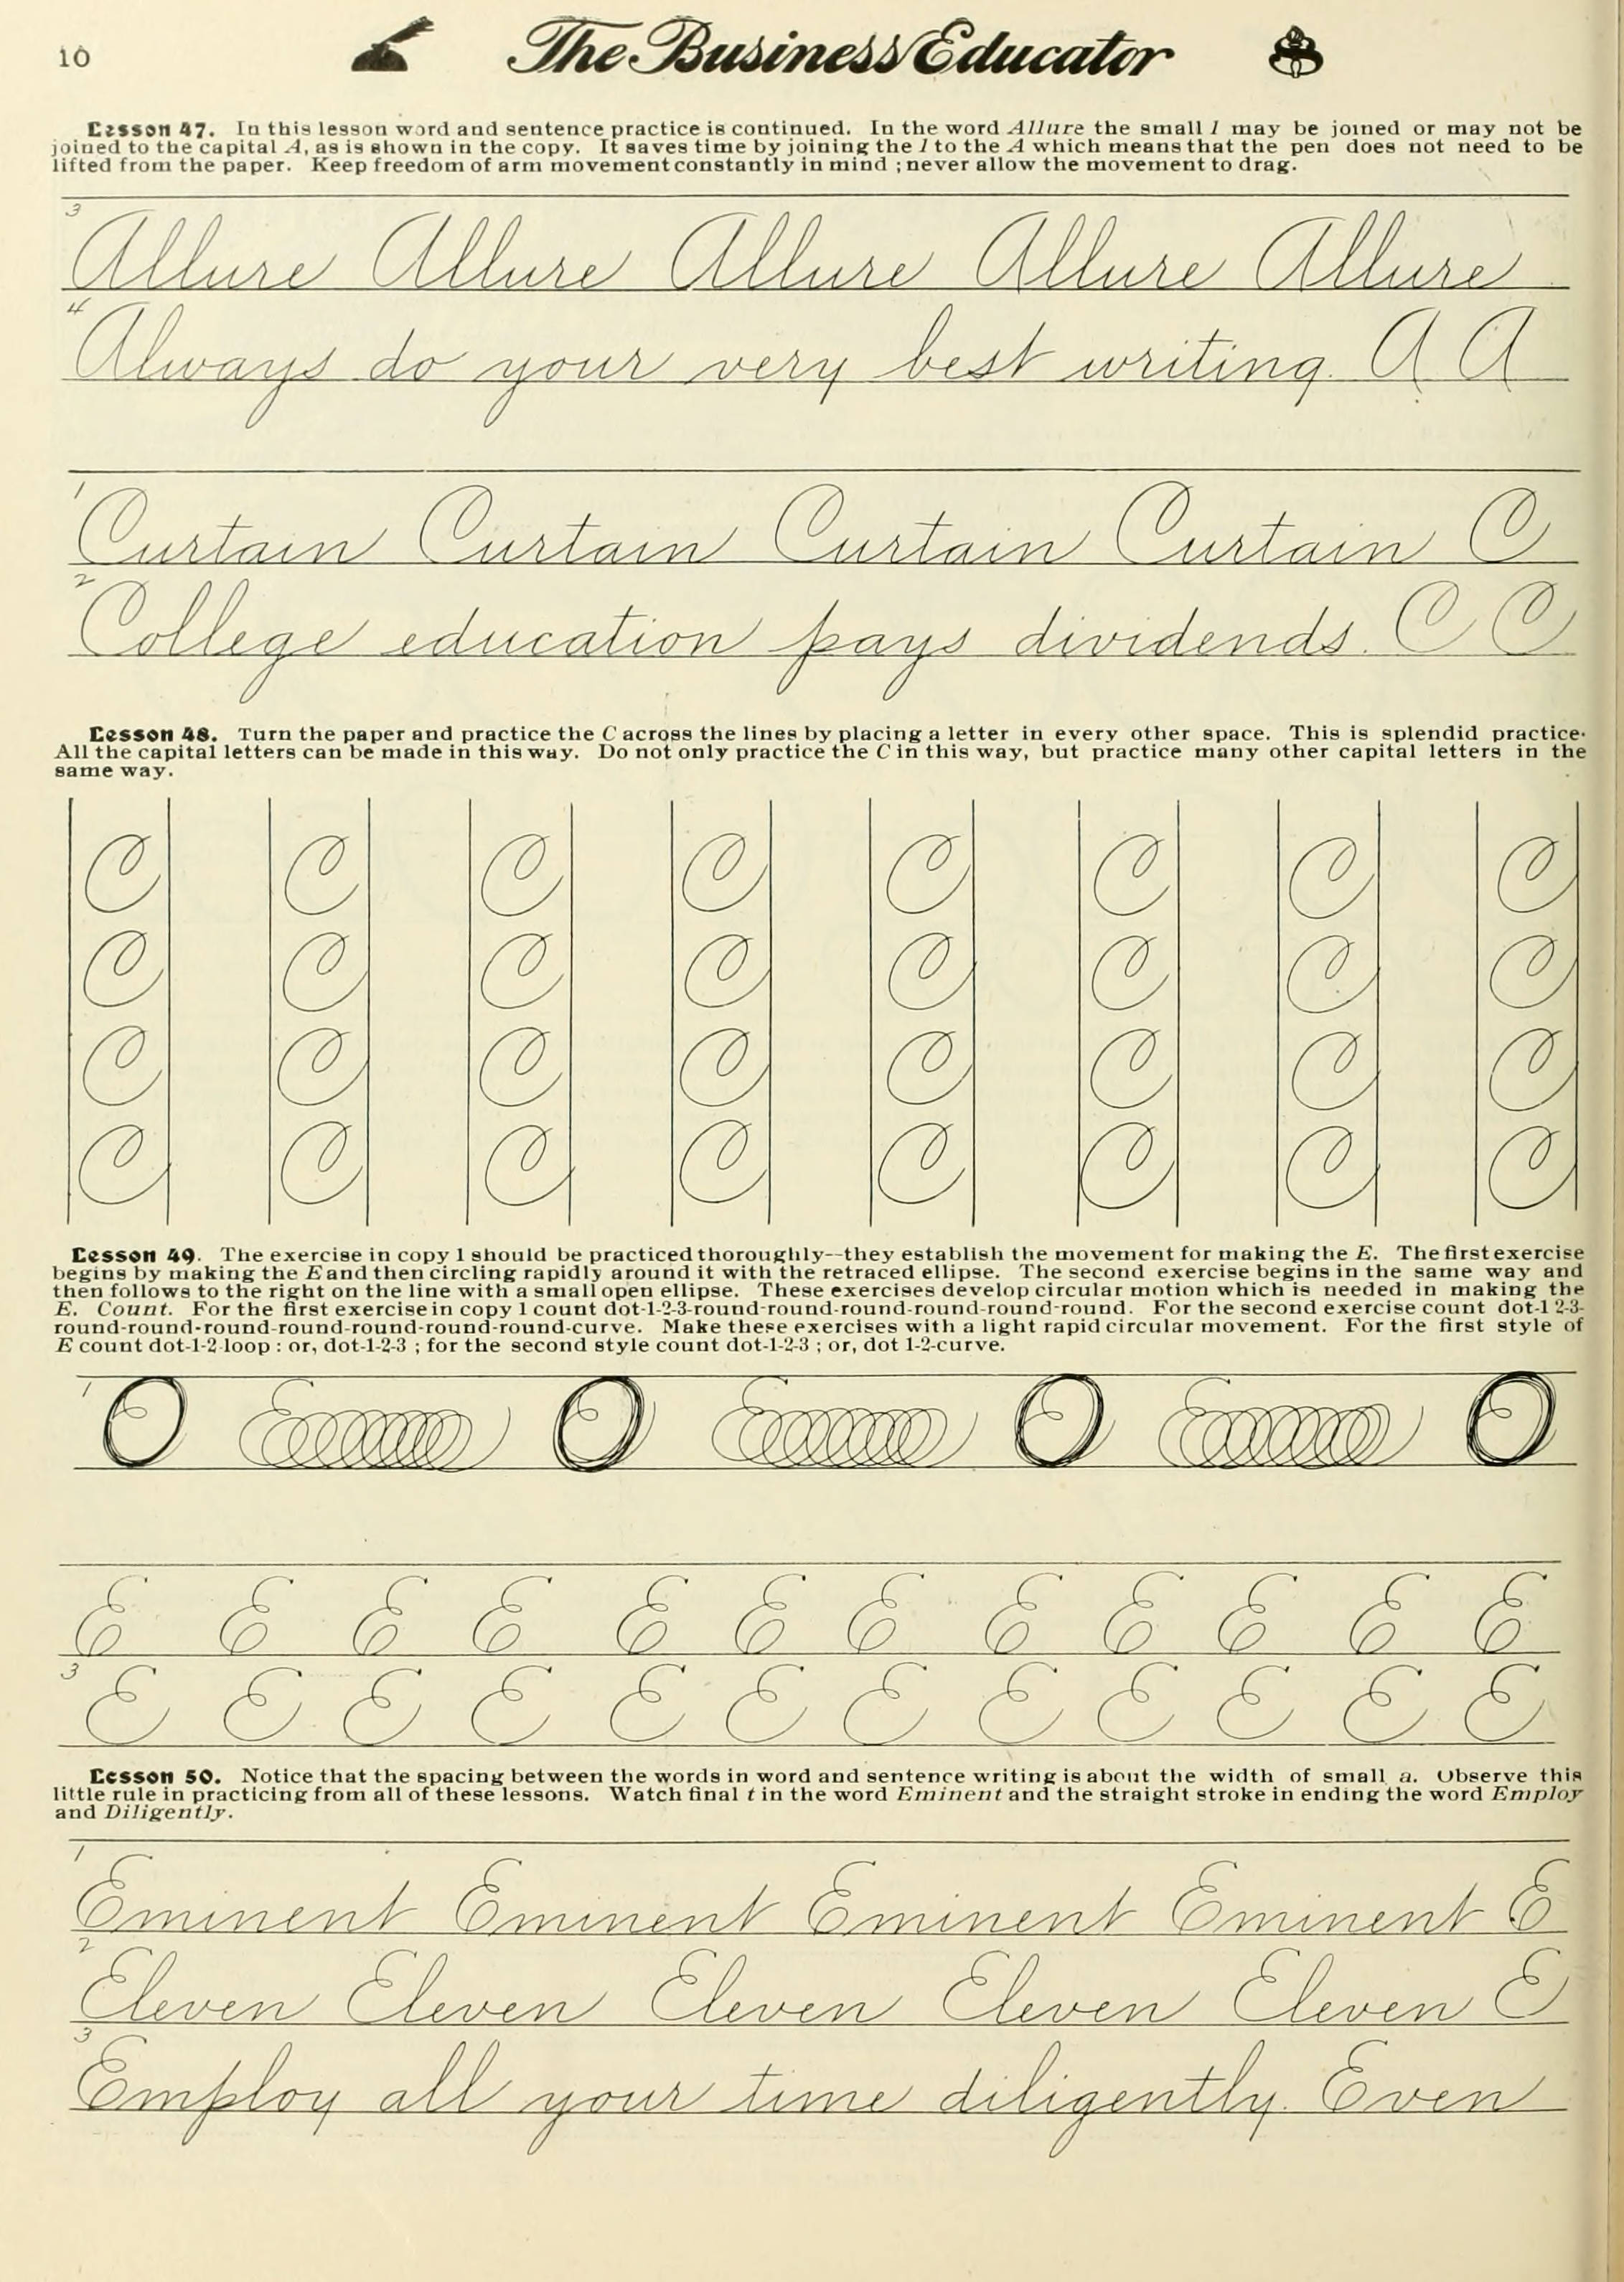 10
The Business Educator
Lesson 47. In this lesson word and sentence practice is continued. In the word Allure the small l may be joined or may not be
joined to the capital A, as is shown in the copy. It saves time by joining the l to the A which means that the pen does not need to be
lifted from the paper. Keep freedom of arm movement constantly in mind; never allow the movement to drag.
3
Allure Allure Allure Allure Allure
4
Always do your very best writing. A A
1
Curtain Curtain Curtain Curtain C
2
College education pays dividends. C C
Lesson 48. Turn the paper and practice the C across the lines by placing a letter in every other space. This is splendid practice.
All the capital letters can be made in this way. Do not only practice the C in this way, but practice many other capital letters in the
same way.
C C C C C C C C
C C C C C C C C
C C C C C C C C
C C C C C C C C
Lesson 49. The exercise in copy 1 should be practiced thoroughly--they establish the movement for making the E. The first exercise
begins by making the E and then circling rapidly around it with the retraced ellipse. The second exercise begins in the same way and
then follows to the right on the line with a small open ellipse. These exercises develop circular motion which is needed in making the
E. Count. For the first exercise in copy 1 count dot-1-2-3-round-round-round-round-round-round. For the second exercise count dot-1 2-3-
round-round-round-round-round-round-round-curve. Make these exercises with a light rapid circular movement. For the first style of
E count dot-1-2 loop : or, dot-1-2-3 ; for the second style count dot-1-2-3 ; or, dot 1-2-curve.
1
E E E E E E E
E E E E E E E E E E E E
3
E E E E E E E E E E E E
Lesson 50. Notice that the spacing between the words in word and sentence writing is about the width of small a. Observe this
little rule in practicing from all of these lessons. Watch final t in the word Eminent and the straight stroke in ending the word Employ
and Diligently.
1
Eminent Eminent Eminent Eminent E
2
Eleven Eleven Eleven Eleven Eleven E
3
Employ all your time diligently. Even